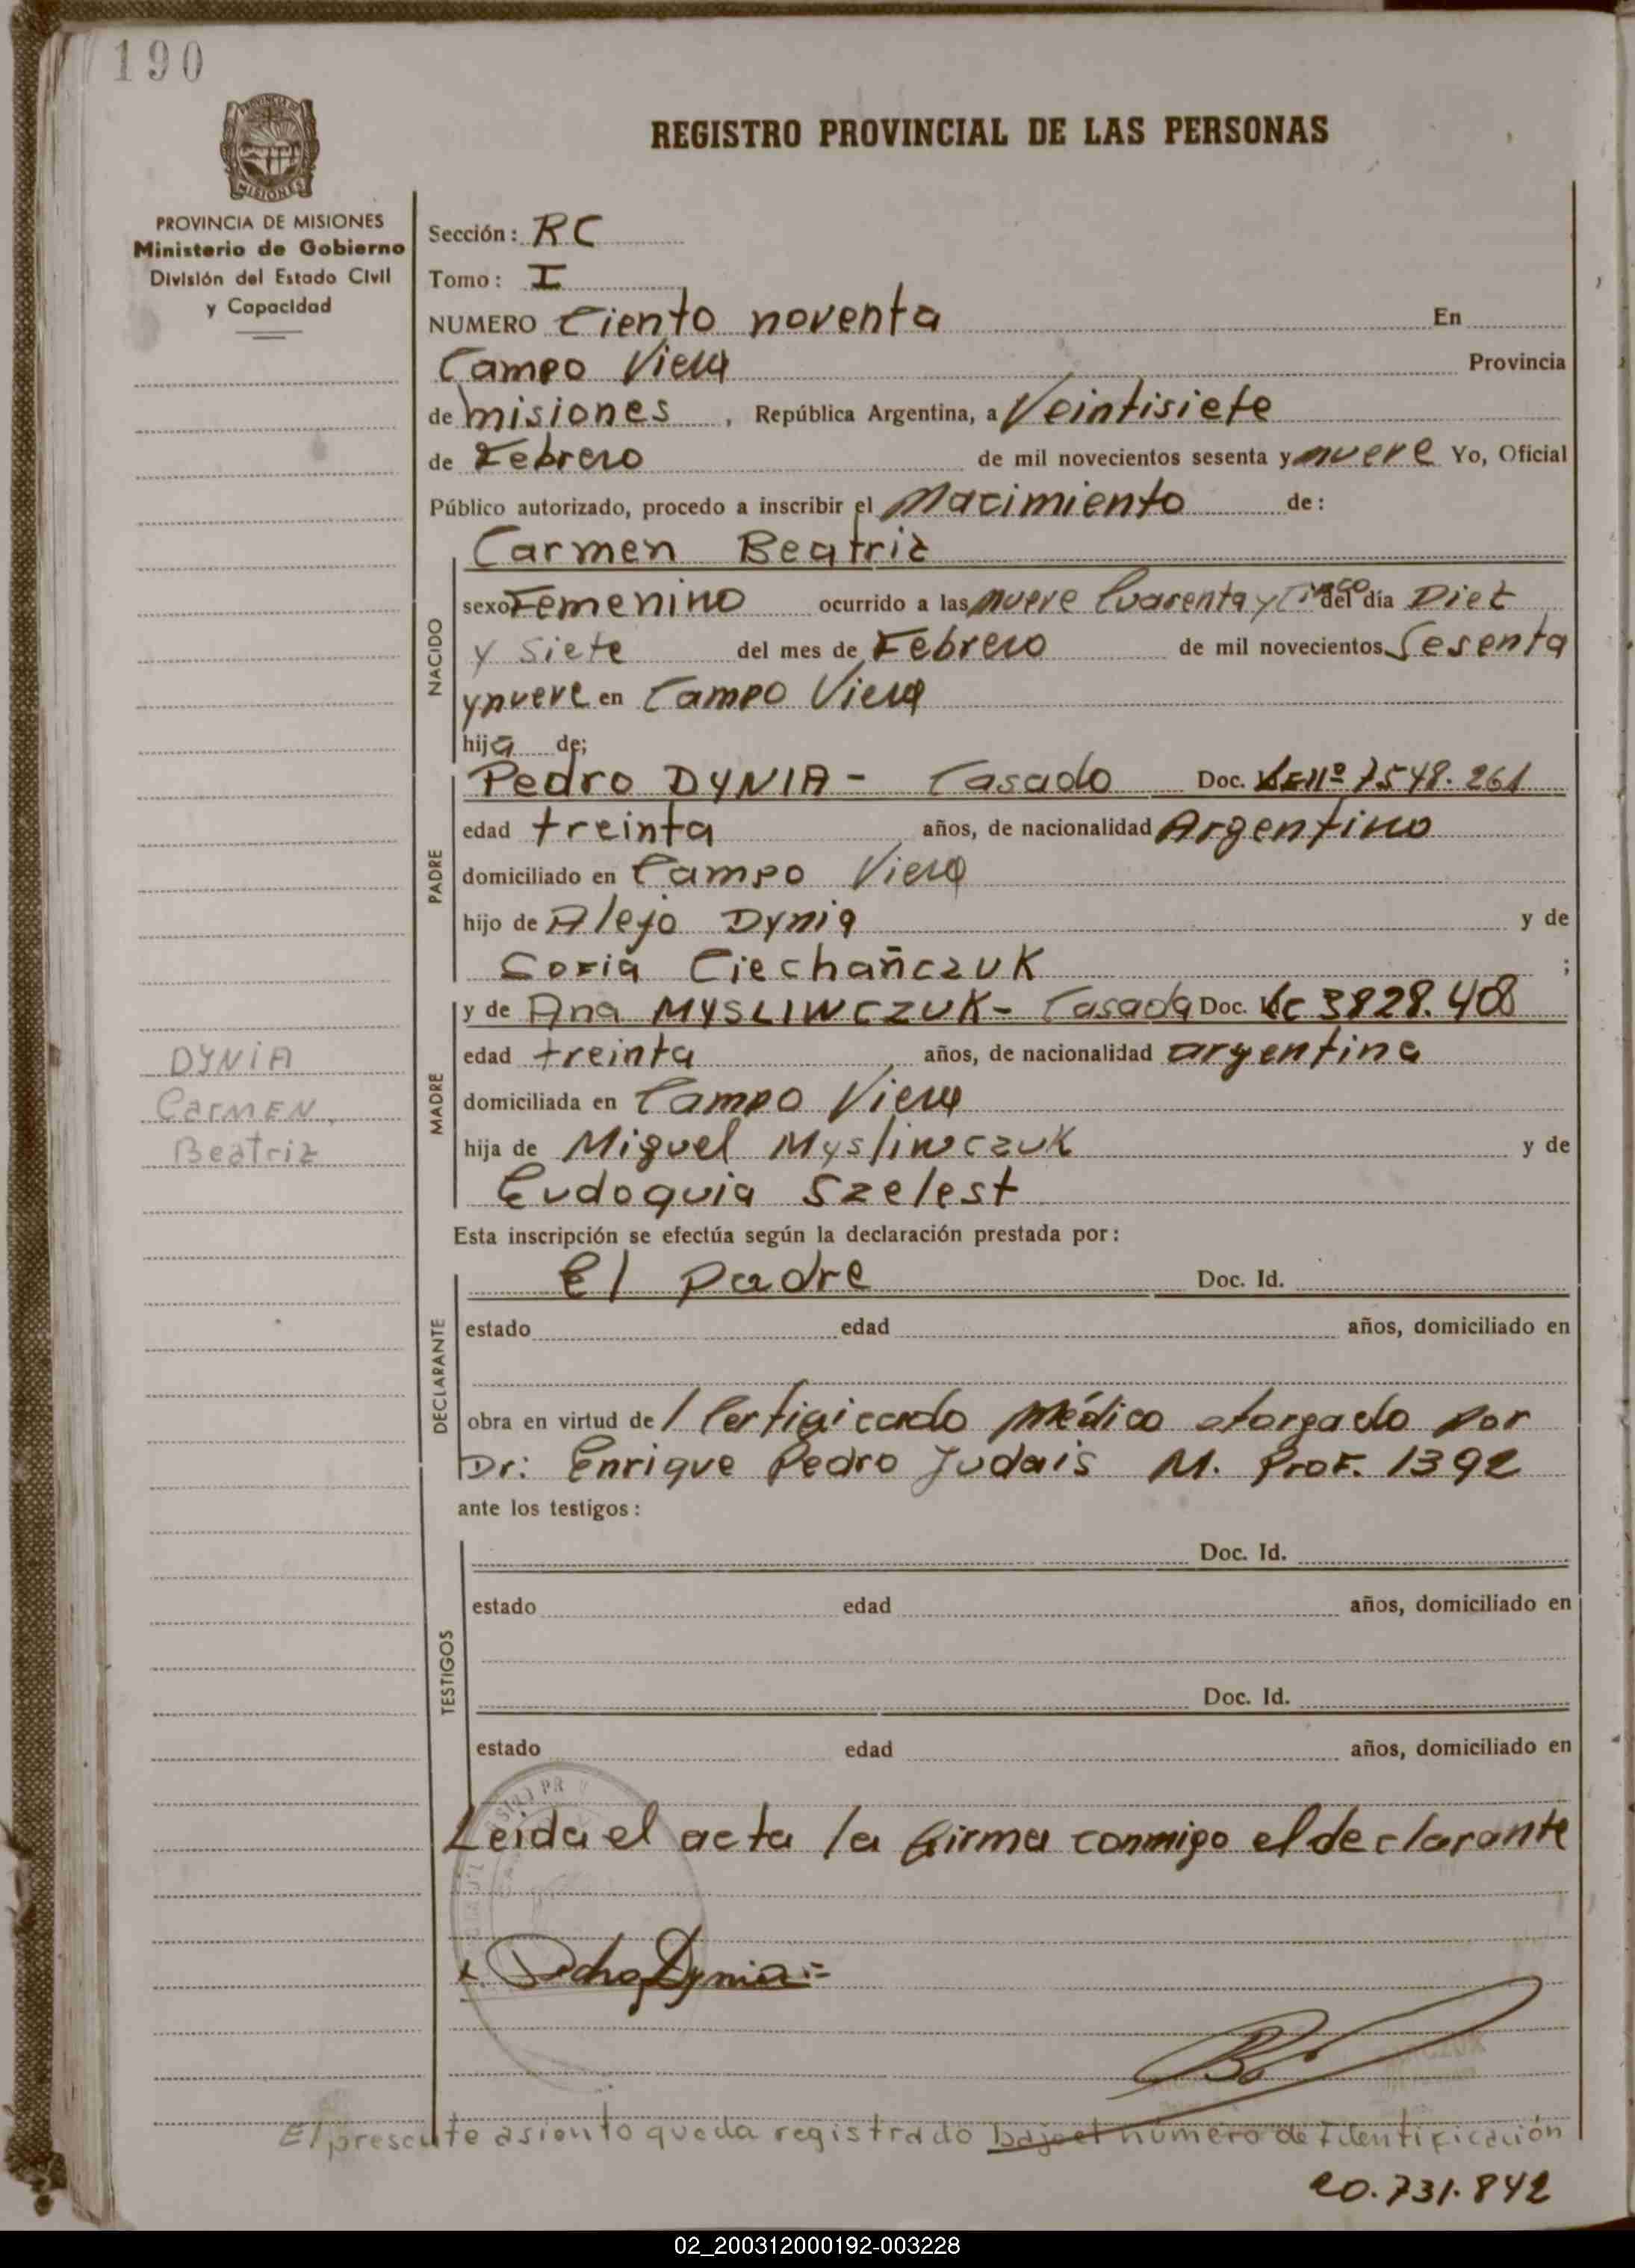 190
REGISTRO PROVINCIAL DE LAS PERSONAS
PROVINCIA DE MISIONES
Ministerio de Gobierno
División del Estado Civil
y Capacidad
Sección: RC
Tomo: I
NUMERO Ciento noventa En
Campo Viera Provincia
de misiones, República Argentina, a Veintisiete
de Febrero de mil novecientos sesenta y nueve Yo, Oficial
Público autorizado, procedo a inscribir el Nacimiento de:
Carmen Beatriz
NACIDO
sexo Femenino ocurrido a las nueve Cuarenta y Cinco del día Diez
y siete del mes de Febrero de mil novecientos Sesenta
y nueve en Campo Viera
hija de;
PADRE
Pedro DYNIA - Casado Doc. Nº 7548.261
edad treinta años, de nacionalidad Argentino
domiciliado en Campo Viera
hijo de Alejo Dynia y de
Sofia Ciechañczuk ;
MADRE
y de Ana MYSLIWCZUK - Casada Doc. 3828.408
edad treinta años, de nacionalidad argentina
domiciliada en Campo Viera
hija de Miguel Mysliwczuk y de
Eudoquia Szelest
DYNIA
Carmen
Beatriz
Esta inscripción se efectúa según la declaración prestada por:
DECLARANTE
El padre Doc. Id.
estado edad años, domiciliado en
obra en virtud de 1 Certificado Médico otorgado por
Dr: Enrique Pedro Judais M. Prof. 1392
ante los testigos:
TESTIGOS
Doc. Id.
estado edad años, domiciliado en
Doc. Id.
estado edad años, domiciliado en
Leida el acta la firma conmigo el declarante
Pedro Dynia
El presente asiento queda registrado bajo el número de Identificación
20.731.842
02_200312000192-003228